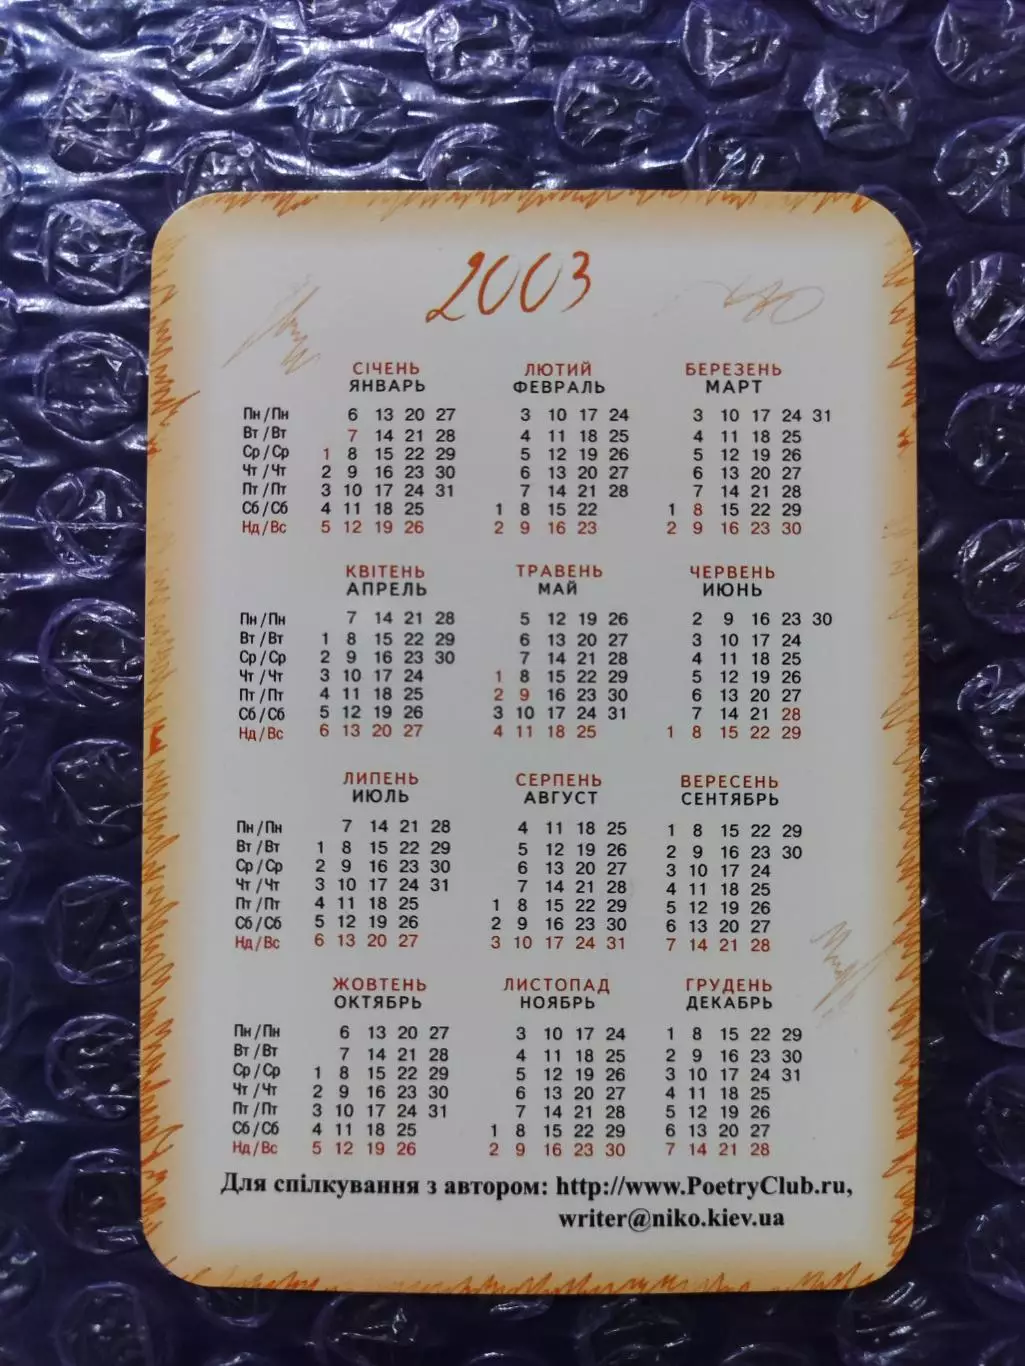 2003
СІЧЕНЬ ЛЮТИЙ БЕРЕЗЕНЬ
ЯНВАРЬ ФЕВРАЛЬ МАРТ
Пн/Пн 6 13 20 27 3 10 17 24 3 10 17 24 31
Вт/Вт 7 14 21 28 4 11 18 25 4 11 18 25
Ср/Ср 1 8 15 22 29 5 12 19 26 5 12 19 26
Чт/Чт 2 9 16 23 30 6 13 20 27 6 13 20 27
Пт/Пт 3 10 17 24 31 7 14 21 28 7 14 21 28
Сб/Сб 4 11 18 25 1 8 15 22 1 8 15 22 29
Нд/Вс 5 12 19 26 2 9 16 23 2 9 16 23 30
КВІТЕНЬ ТРАВЕНЬ ЧЕРВЕНЬ
АПРЕЛЬ МАЙ ИЮНЬ
Пн/Пн 7 14 21 28 5 12 19 26 2 9 16 23 30
Вт/Вт 1 8 15 22 29 6 13 20 27 3 10 17 24
Ср/Ср 2 9 16 23 30 7 14 21 28 4 11 18 25
Чт/Чт 3 10 17 24 1 8 15 22 29 5 12 19 26
Пт/Пт 4 11 18 25 2 9 16 23 30 6 13 20 27
Сб/Сб 5 12 19 26 3 10 17 24 31 7 14 21 28
Нд/Вс 6 13 20 27 4 11 18 25 1 8 15 22 29
ЛИПЕНЬ СЕРПЕНЬ ВЕРЕСЕНЬ
ИЮЛЬ АВГУСТ СЕНТЯБРЬ
Пн/Пн 7 14 21 28 4 11 18 25 1 8 15 22 29
Вт/Вт 1 8 15 22 29 5 12 19 26 2 9 16 23 30
Ср/Ср 2 9 16 23 30 6 13 20 27 3 10 17 24
Чт/Чт 3 10 17 24 31 7 14 21 28 4 11 18 25
Пт/Пт 4 11 18 25 1 8 15 22 29 5 12 19 26
Сб/Сб 5 12 19 26 2 9 16 23 30 6 13 20 27
Нд/Вс 6 13 20 27 3 10 17 24 31 7 14 21 28
ЖОВТЕНЬ ЛИСТОПАД ГРУДЕНЬ
ОКТЯБРЬ НОЯБРЬ ДЕКАБРЬ
Пн/Пн 6 13 20 27 3 10 17 24 1 8 15 22 29
Вт/Вт 7 14 21 28 4 11 18 25 2 9 16 23 30
Ср/Ср 1 8 15 22 29 5 12 19 26 3 10 17 24 31
Чт/Чт 2 9 16 23 30 6 13 20 27 4 11 18 25
Пт/Пт 3 10 17 24 31 7 14 21 28 5 12 19 26
Сб/Сб 4 11 18 25 1 8 15 22 29 6 13 20 27
Нд/Вс 5 12 19 26 2 9 16 23 30 7 14 21 28
Для спілкування з автором: http://www.PoetryClub.ru,
writer@niko.kiev.ua